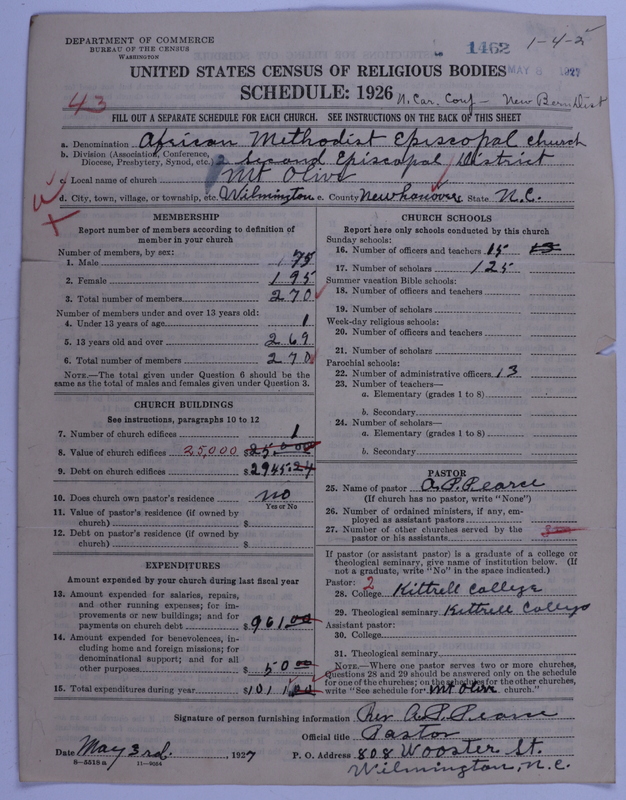 DEPARTMENT OF COMMERCE
BUREAU OF THE CENSUS
WASHINGTON
1462
1-4-25
MAY 6 1927
UNITED STATES CENSUS OF RELIGIOUS BODIES
SCHEDULE: 1926
N. Car. Conf - New Bern Dist
43
FILL OUT A SEPARATE SCHEDULE FOR EACH CHURCH. SEE INSTRUCTIONS ON THE BACK OF THIS SHEET
a. Denomination African Methodist Episcopal Church
b. Division (Association, Conference, Diocese, Presbytery, Synod, etc.) 2 Second Episcopal District
c. Local name of church Mt Olive
d. City, town, village, or township, etc. Wilmington e. County Newhanover State N.C.
MEMBERSHIP
Report number of members according to definition of
member in your church
Number of members, by sex:
1. Male 75
2. Female 195
3. Total number of members 270
Number of members under and over 13 years old:
4. Under 13 years of age 1
5. 13 years old and over 269
6. Total number of members 270
NOTE.—The total given under Question 6 should be the
same as the total of males and females given under Question 3.
CHURCH BUILDINGS
See instructions, paragraphs 10 to 12
7. Number of church edifices 1
8. Value of church edifices 25,000 $ 25,000
9. Debt on church edifices $ 2945.24
10. Does church own pastor's residence no
Yes or No
11. Value of pastor's residence (if owned by
church) $
12. Debt on pastor's residence (if owned by
church) $
EXPENDITURES
Amount expended by your church during last fiscal year
13. Amount expended for salaries, repairs,
and other running expenses; for im-
provements or new buildings; and for
payments on church debt $ 961.00
14. Amount expended for benevolences, in-
cluding home and foreign missions; for
denominational support; and for all
other purposes $ 50 00
15. Total expenditures during year $ 1011 00
CHURCH SCHOOLS
Report here only schools conducted by this church
Sunday schools:
16. Number of officers and teachers 15
17. Number of scholars 125
Summer vacation Bible schools:
18. Number of officers and teachers
19. Number of scholars
Week-day religious schools:
20. Number of officers and teachers
21. Number of scholars
Parochial schools:
22. Number of administrative officers 13
23. Number of teachers—
a. Elementary (grades 1 to 8)
b. Secondary
24. Number of scholars—
a. Elementary (grades 1 to 8)
b. Secondary
PASTOR
25. Name of pastor A.P. Pearce
(If church has no pastor, write "None")
26. Number of ordained ministers, if any, em-
ployed as assistant pastors
27. Number of other churches served by the
pastor or his assistants
If pastor (or assistant pastor) is a graduate of a college or
theological seminary, give name of institution below. (If
not a graduate, write "No" in the space indicated.)
Pastor: 2
28. College Kittrell College
29. Theological seminary Kittrell College
Assistant pastor:
30. College
31. Theological seminary
NOTE.—Where one pastor serves two or more churches,
Questions 28 and 29 should be answered only on the schedule
for one of the churches; on the schedules for the other churches,
write "See schedule for Mt Olive church."
Signature of person furnishing information Rev. A.P. Pearce
Official title Pastor
Date May 3rd. , 1927
P. O. Address 808 Wooster St.
8-5518 a
Wilmington, N.C.